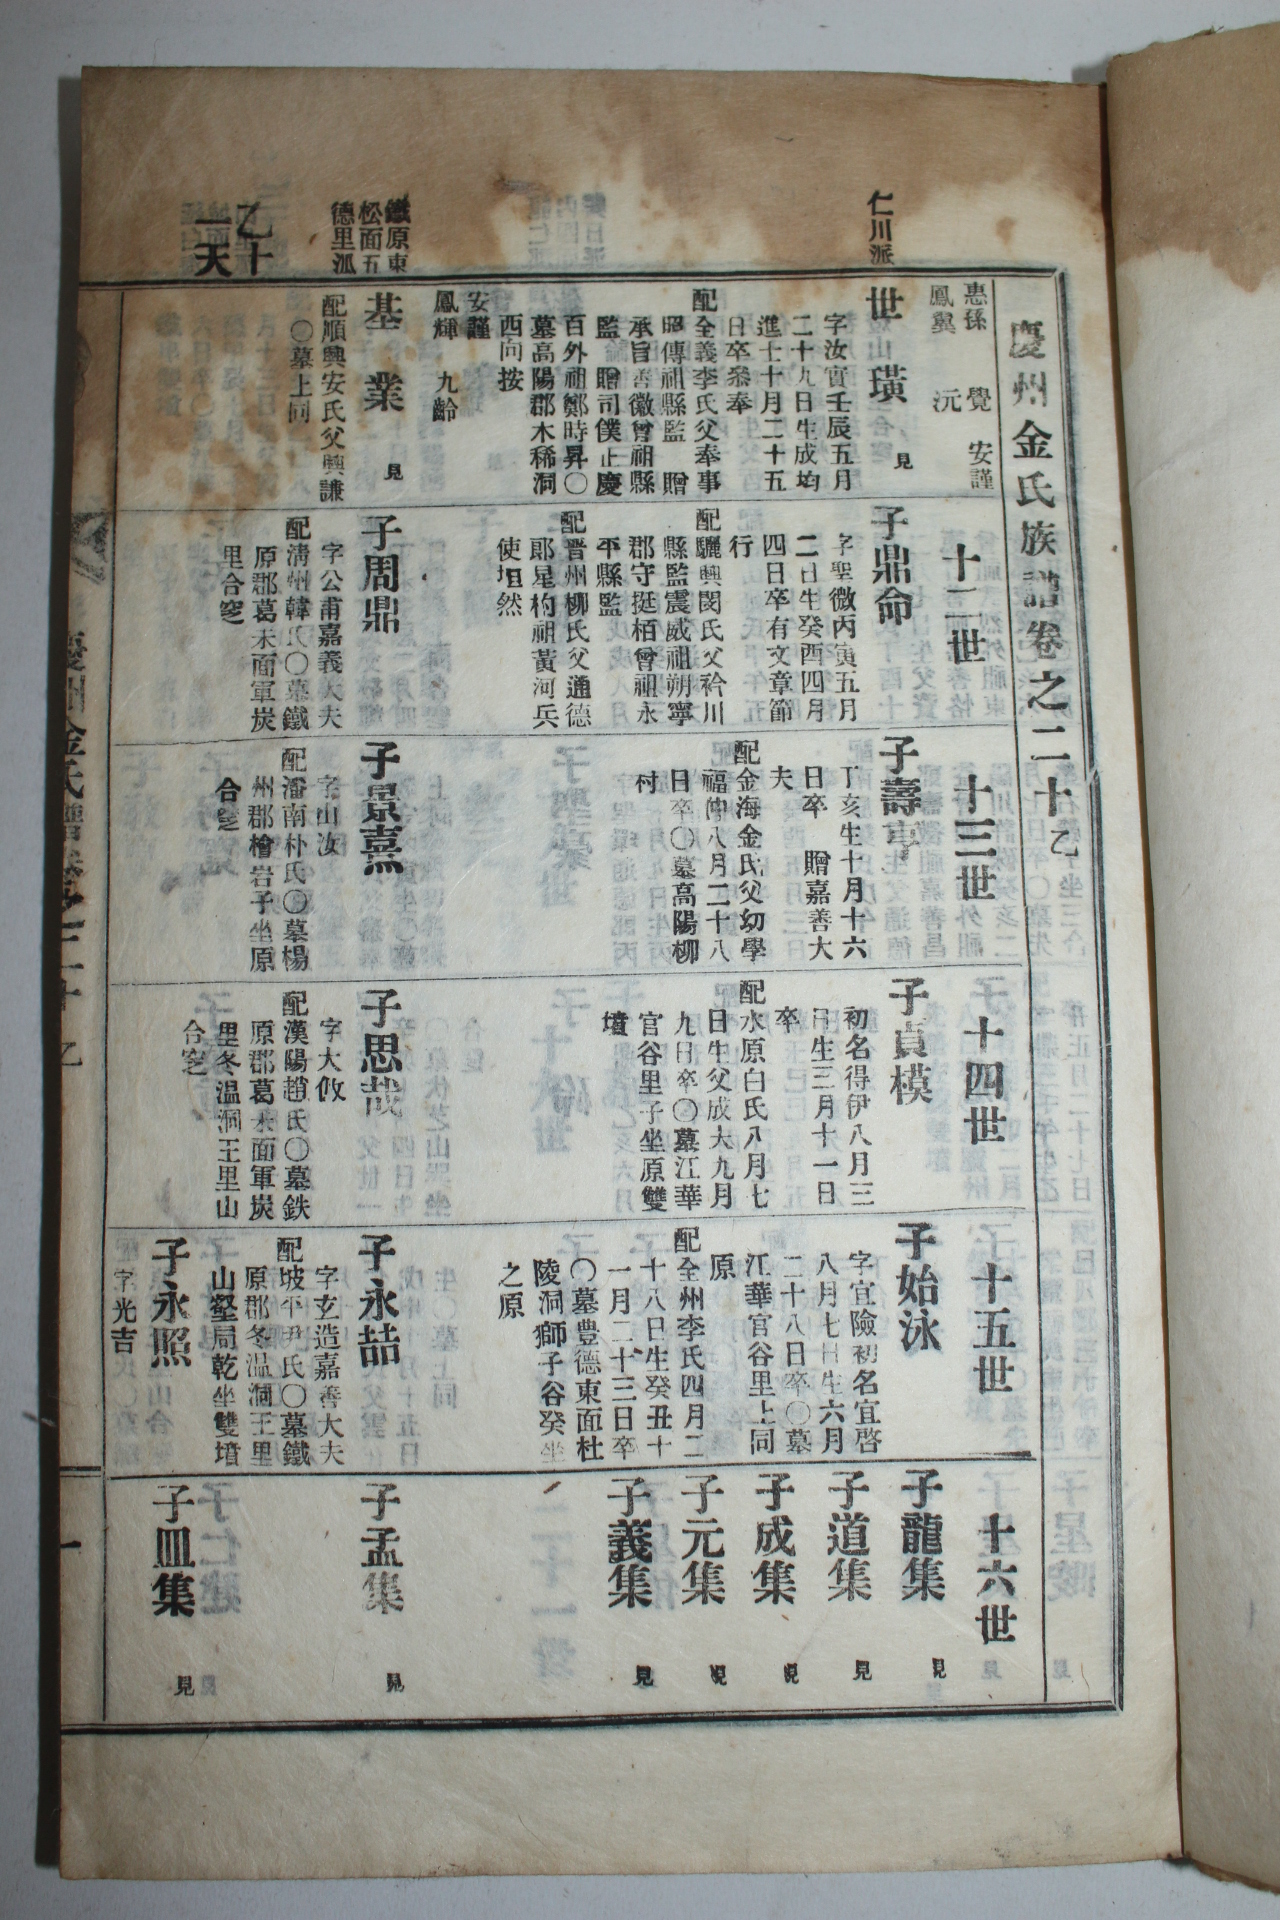 慶州金氏族譜卷之二十乙
仁川派
惠孫　覺　安謹
鳳翼　沅
世璜　見
字汝實壬辰五月
二十九日生成均
進士十月二十五
日卒參奉
配全義李氏父奉事
昭傳祖縣監　贈
承旨善徽曾祖縣
監　贈司僕正慶
百外祖鄭時昇〇
墓高陽郡木稀洞
西向按
安謹
鳳輝　九齡
鐵原東
松面五
德里派
基業　見
配順興安氏父興謙
〇墓上同
乙十
一天
十二世
子鼎命
字聖微丙寅五月
二日生癸酉四月
四日卒有文章節
行
配驪興閔氏父衿川
縣監震威祖朔寧
郡守挺栢曾祖永
平縣監
配晋州柳氏父通德
郞星杓祖黃河兵
使垣然
子周鼎
字公甫嘉義大夫
配淸州韓氏〇墓鐵
原郡葛末面軍炭
里合窆
十三世
子壽
丁亥生十月十六
日卒　贈嘉善大
夫
配金海金氏父幼學
福仲八月二十八
日卒〇墓高陽柳
村
子景熹
字山汝
配潘南朴氏〇墓楊
州郡檜岩子坐原
合窆
十四世
子貞模
初名得伊八月三
日生三月十一日
卒
配水原白氏八月七
日生父成大九月
九日卒〇墓江華
官谷里子坐原雙
墳
子思哉
字大攸
配漢陽趙氏〇墓鉄
原郡葛末面軍炭
里冬溫洞王里山
合窆
十五世
子始泳
字宜險初名宜啓
八月七日生六月
二十八日卒〇墓
江華官谷里上同
原
配全州李氏四月二
十八日生癸丑十
一月二十三日卒
〇墓豊德東面杜
陵洞獅子谷癸坐
之原
子永喆
字玄造嘉善大夫
配坡平尹氏〇墓鐵
原郡冬溫洞王里
山壑局乾坐雙墳
子永照
字光吉
十六世
子龍集　見
子道集　見
子成集　見
子元集　見
子義集　見
子孟集　見
子皿集　見
慶州金氏譜卷之二十乙
一